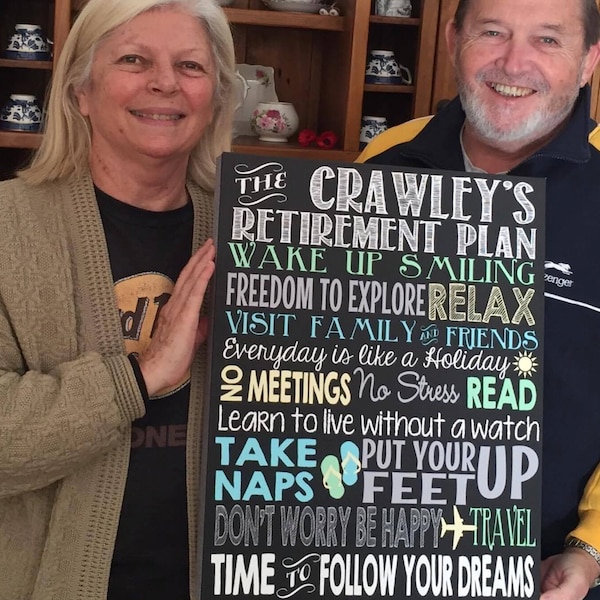 THE CRAWLEY'S
RETIREMENT PLAN
WAKE UP SMILING
FREEDOM TO EXPLORE RELAX
VISIT FAMILY AND FRIENDS
Everyday is like a Holiday
NO MEETINGS No Stress READ
Learn to live without a watch
TAKE NAPS PUT YOUR FEET UP
DON'T WORRY BE HAPPY TRAVEL
TIME TO FOLLOW YOUR DREAMS